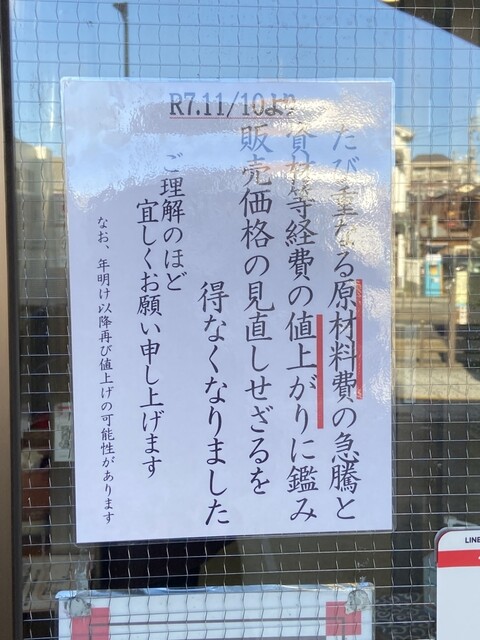 R7.11/10より
たび重なる原材料費の急騰と
資材等経費の値上がりに鑑み
販売価格の見直しせざるを
得なくなりました
ご理解のほど
宜しくお願い申し上げます
なお、年明け以降再び値上げの可能性があります
LINE